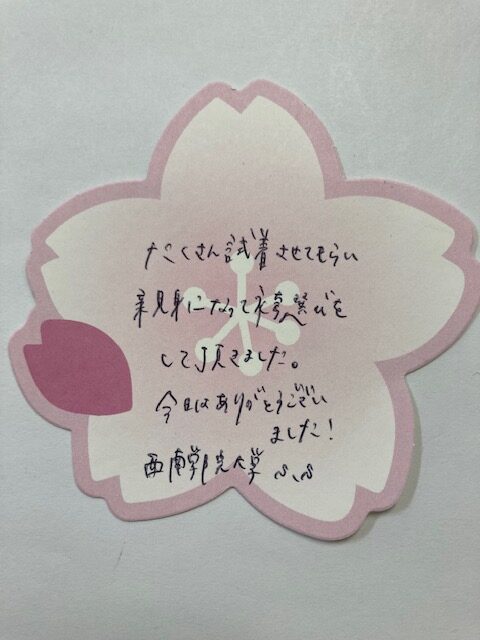 たくさん試着させてもらい
親身になって袴選びを
して頂きました。
今日はありがとうござい
ました!
西南学院大学 S.S